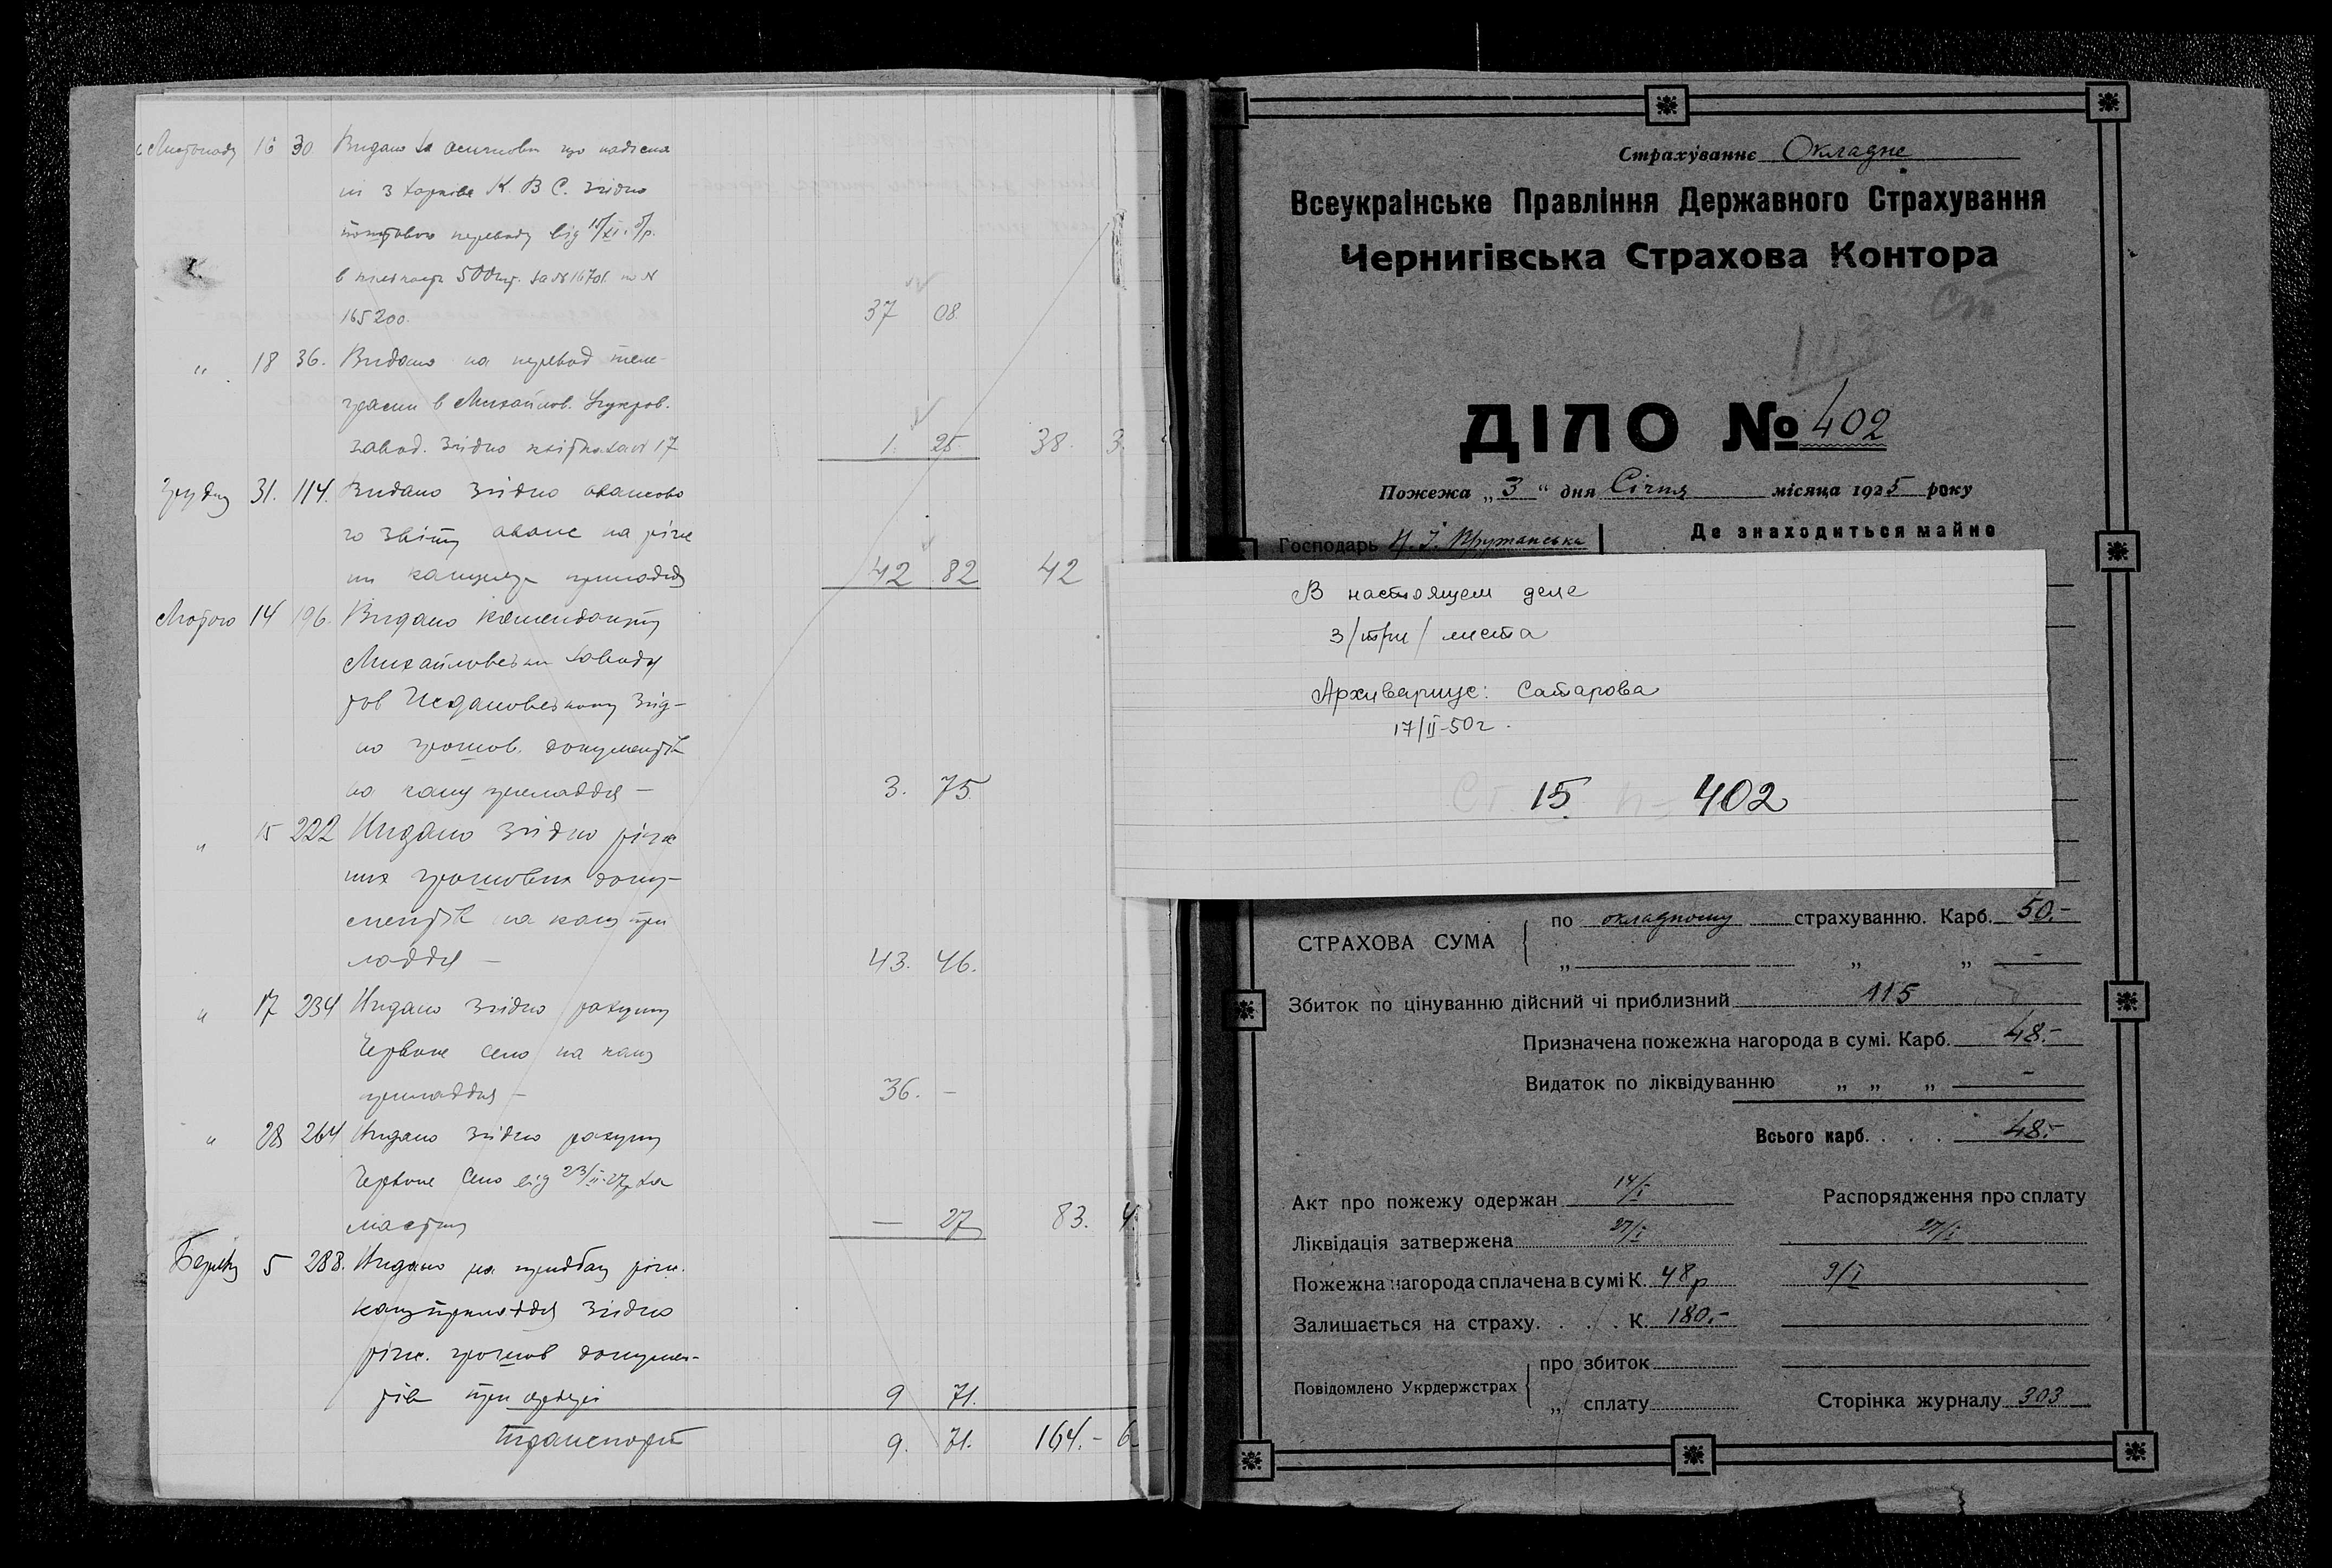 Листопад 16 30 Видано за
з Харкова К. В С. згідно
переводу від
в 500 шт. за № 16701 по №
165200. 37 08
" 18 36. Видано на перевод теле-
грами в Михайлов. Цукров.
завод. згідно 17 1. 25 38. 3
Грудня 31. 114. Видано згідно авансово
го звіту аванс на різне
42 82 42
Лютого 14 196. Видано комендонту
Михайловськ заводу
тов згід-
но грошов. документів
на канц приладдя — 3. 75
" 15 222 Видано згідно різ
них грошових доку-
ментів на канц при
ладдя — 43. 46.
" 17 234 Видано згідно рахунку
Червоне село на канц
приладдя — 36. —
" 28 264 Видано згідно рахунку
Червоне село від 23/II-27р за
мастику — 27 83. 4
5 288. Видано на придбан різн.
канцприладдя згідно
різн. грошов докумен-
тів при 9 71.
транспорт 9. 71. 164.- 6
Страхуваннє Окладне
Всеукраїнське Правління Державного Страхування
Чернигівська Страхова Контора
ДІЛО № 402
Пожежа „3" дня Січня місяца 1925 року
Господарь Де знаходиться майно
В настоящем деле
3/три/ листа
Архивариус: Сатарова
17/II-50г.
Ст 15. н- 402
СТРАХОВА СУМА по окладному страхуванню. Карб. 50.-
„ „ „ -
Збиток по цінуванню дійсний чі приблизний 115
Призначена пожежна нагорода в сумі. Карб. 48.-
Видаток по ліквідуванню „ „ „ -
Всього карб. . . . 48.-
Акт про пожежу одержан 14/I Распорядження про сплату
Ліквідація затвержена 27/I 27/I
Пожежна нагорода сплачена в сумі К. 48 р 9/I
Залишається на страху. . . . К. 180.-
Повідомлено Укрдержстрах про збиток
„ сплату Сторінка журналу 303